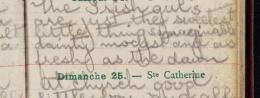 the
are just the sweetest
little things imaginable
dainty modest and as
fresh as the dawn
Dimanche 25. — Ste Catherine
At church good